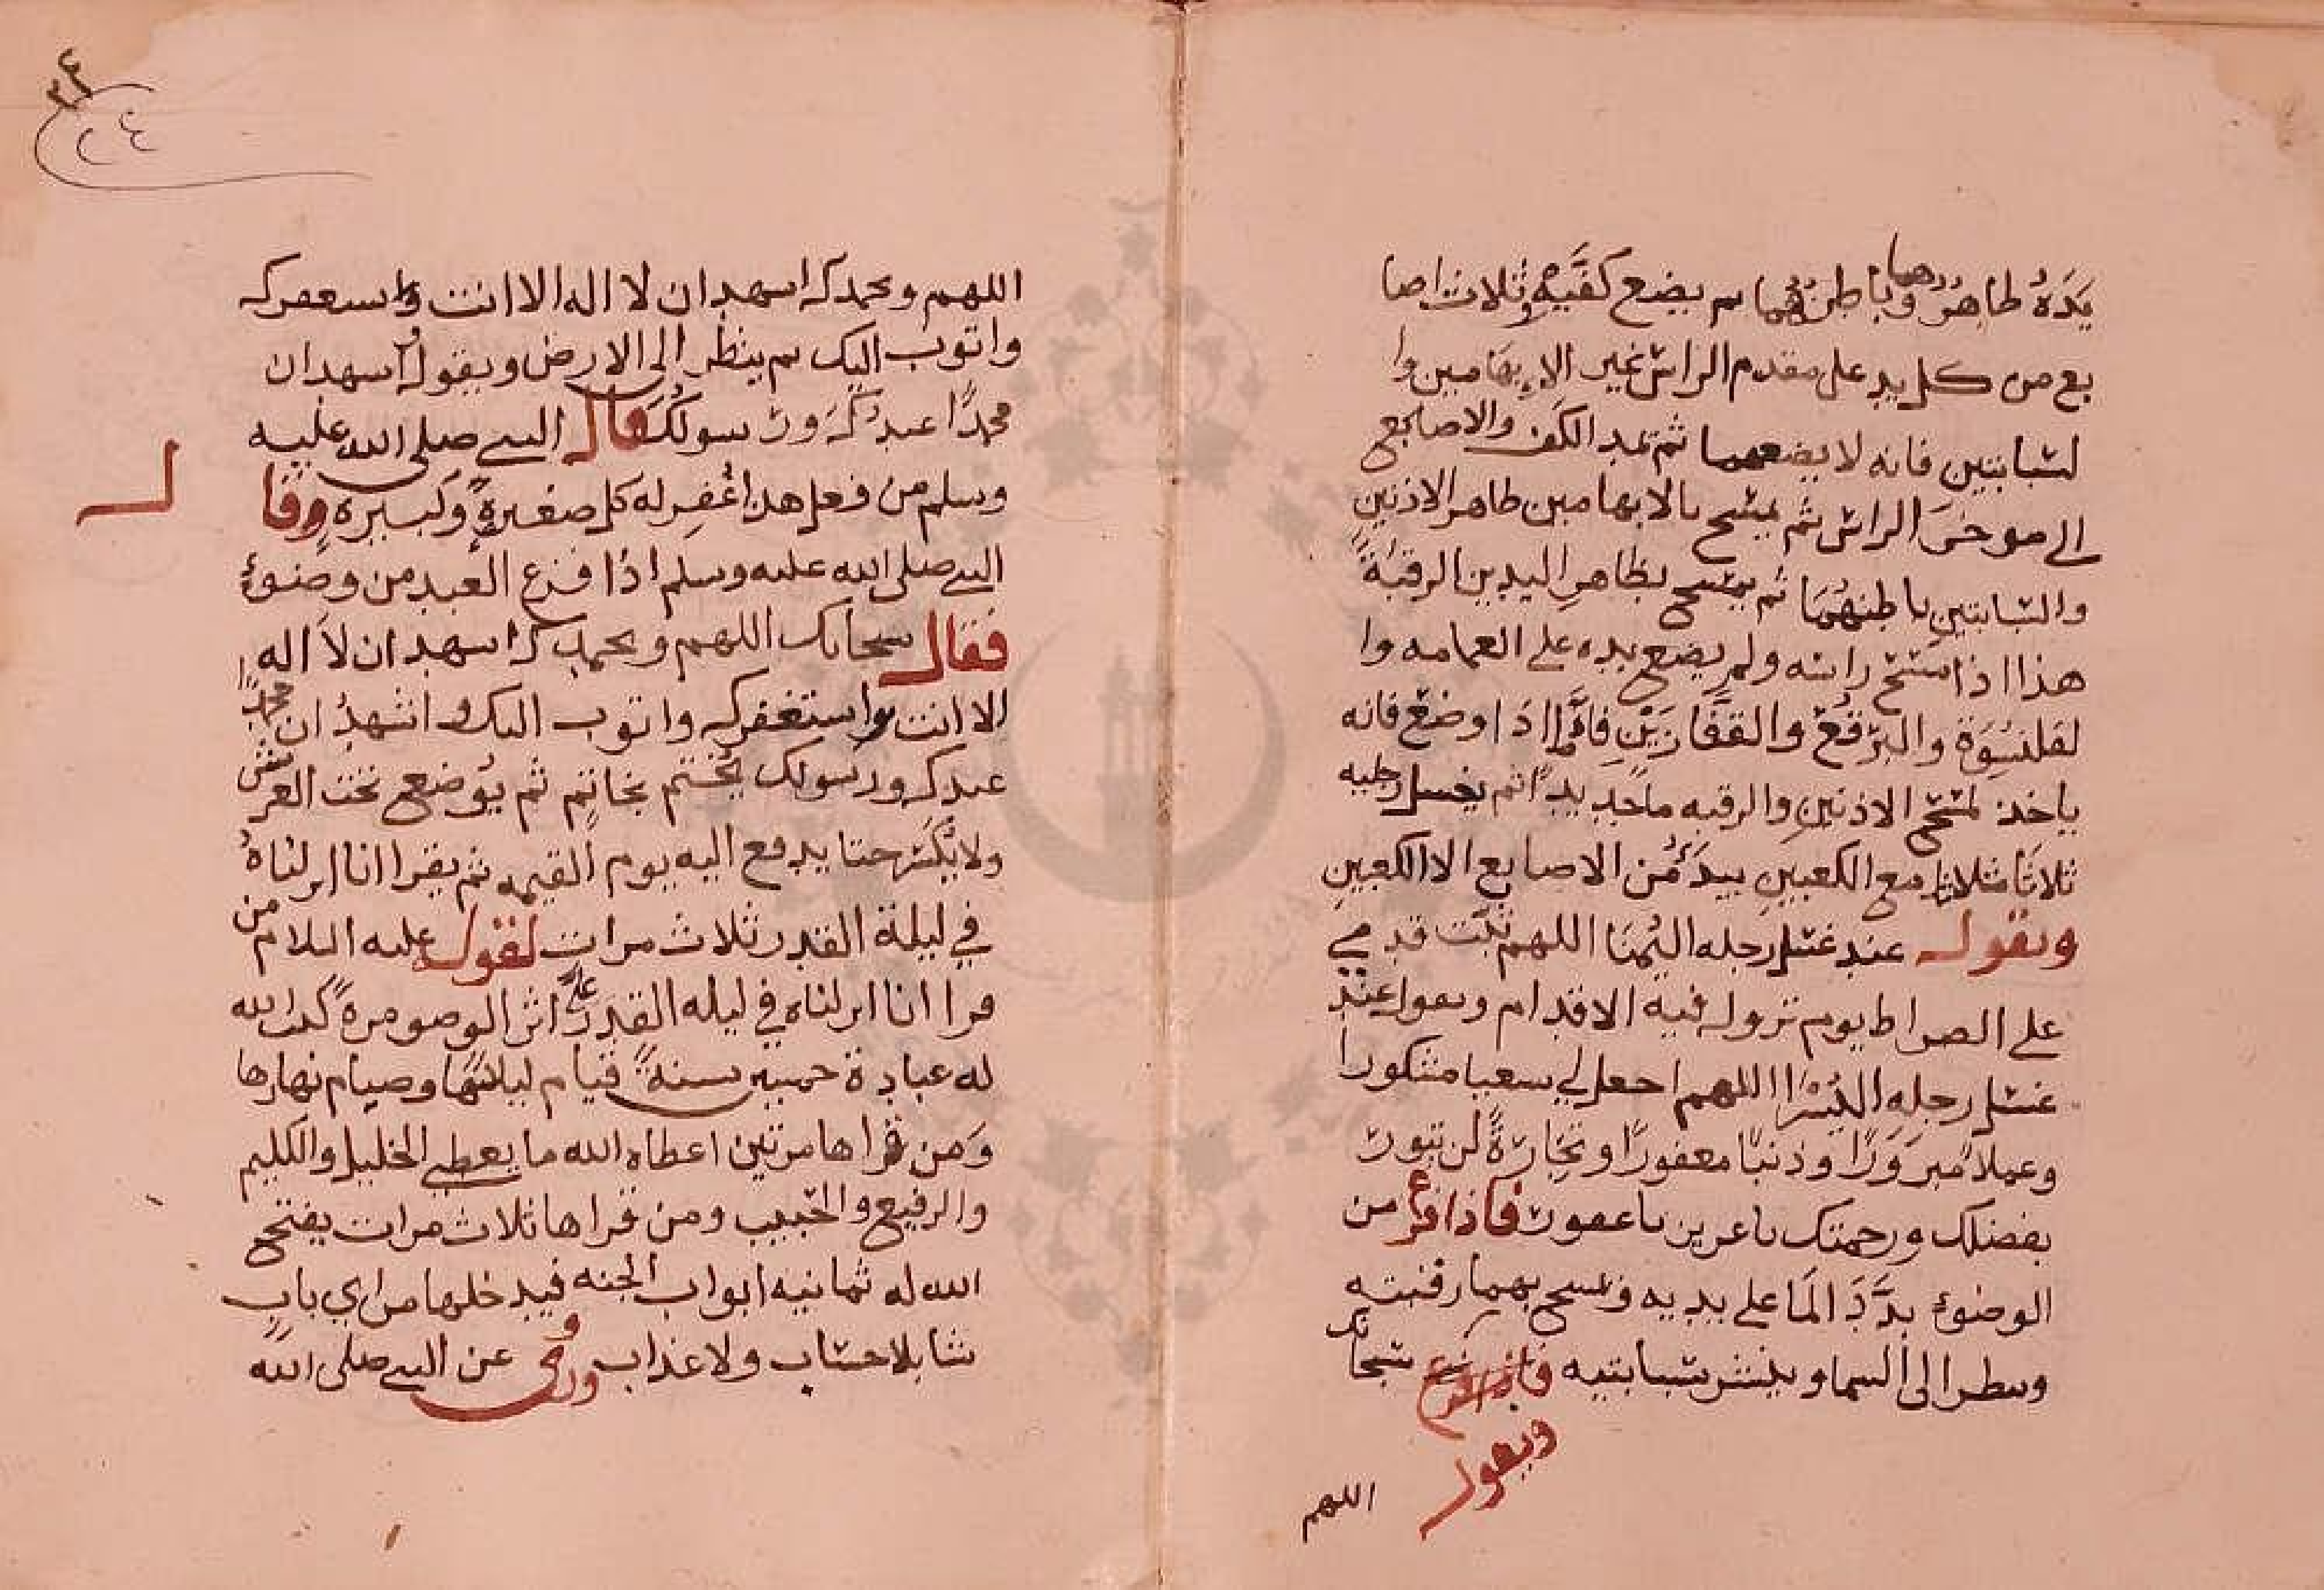 يَدَهُ طاهرُ وباطنُهُما ثم يضع كفَّيهِ وثلاث اصا
بع من كل يدٍ على مقدم الراس غير الابهامين وا
لسبابتين فانه لا يضعهما ثم يمد الكف والاصابع
الى موخر الراس ثم يمسح بالابهامين طاهر الاذنينِ
والسبابتينِ باطنهُمَا ثم يمسح بظاهرِ اليدين الرقبةً
هذا اذا مسح راسه ولم يضع يده على العمامه وا
لقلنسِوَة والبرْقُعْ والقفَّازَيْنِ فامَّا اذا وضعْ فانه
ياخذ لمسْح الاذنينِ والرقبه ماجديدًا ثم يغسل رجليه
ثلاثًا ثلاثا مع الكعبينِ يبدَءُ من الاصابع الا الكعبينِ
ويقول عند غسل رجله اليُمنَا اللهم ثبّت قدمي
على الصراط يوم تزول فيه الاقدام ويقول عند
غسل رجلهِ اليُسْرَا اللهم اجعل لي سعيا مشكورا
وعملاً مبروَرًا وذنبًا معفورًا وتجَارَةً لن تبور
بفضلك ورحمتك ياعزيز ياعفور فاذا فرُغ من
الوضوءِ بدَّدَ الَمَا على يديه ومسح بهما رقبته
وينطر الى السما وينشر سبابتيه سبحانك
ويقول
اللهم
٢٤
اللهم وبحمدك اسهد ان لا اله الا انت واسعفرك
واتوب اليك ثم ينظر الى الارض ويقول اسهد ان
محمدًا عبدُكَ ورسولُكَ قال النبي صلى الله عليه
وسلم من فعل هذا غُفِر له كل صغيرةٍ وكبيرةٍ وقال
النبي صلى الله عليه وسلم اذا فرع العبد من وضوءِ
فقال سبحانك اللهم وبحمدك اسهد ان لا اله
الا انت واستغفرك واتوب اليك واشهدُ ان محمدًا
عبدك ورسولك يُختم بخاتِم ثم يُوضع تحت العرش
ولا يُكسَر حتا يدفع اليه يوم القيمه ثم يقرا انا انزلناهُ
في ليلة القدر ثلاث مرات لقول عليه السلام من
قرا انا انزلناه في ليله القدر على اثر الوضو مرةً كتب الله
له عبادة خمسين سنةً قيام ليلهَا وصيام نهارها
وَمن قراها مرتين اعطاه الله ما يعطي الخليل والكليم
والرفيع والحبيب ومن قراها ثلاث مرات يفتح
الله له ثمانيه ابواب الجنه فيدخلها من اي بابٍ
شا بلا حساب ولا عذاب وروي عن النبي صلى الله